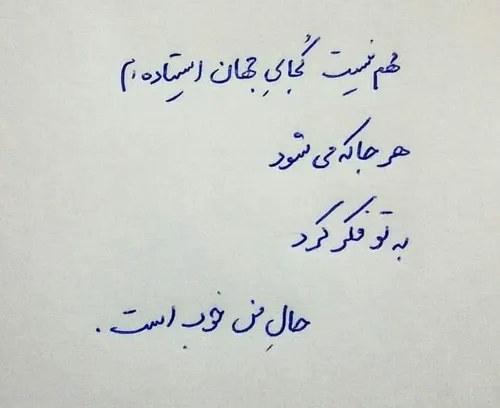 مهم نیست کُجایِ جهان ایستاده ام
هر جا که می شود
به تو فکر کرد
حالِ من خوب است .